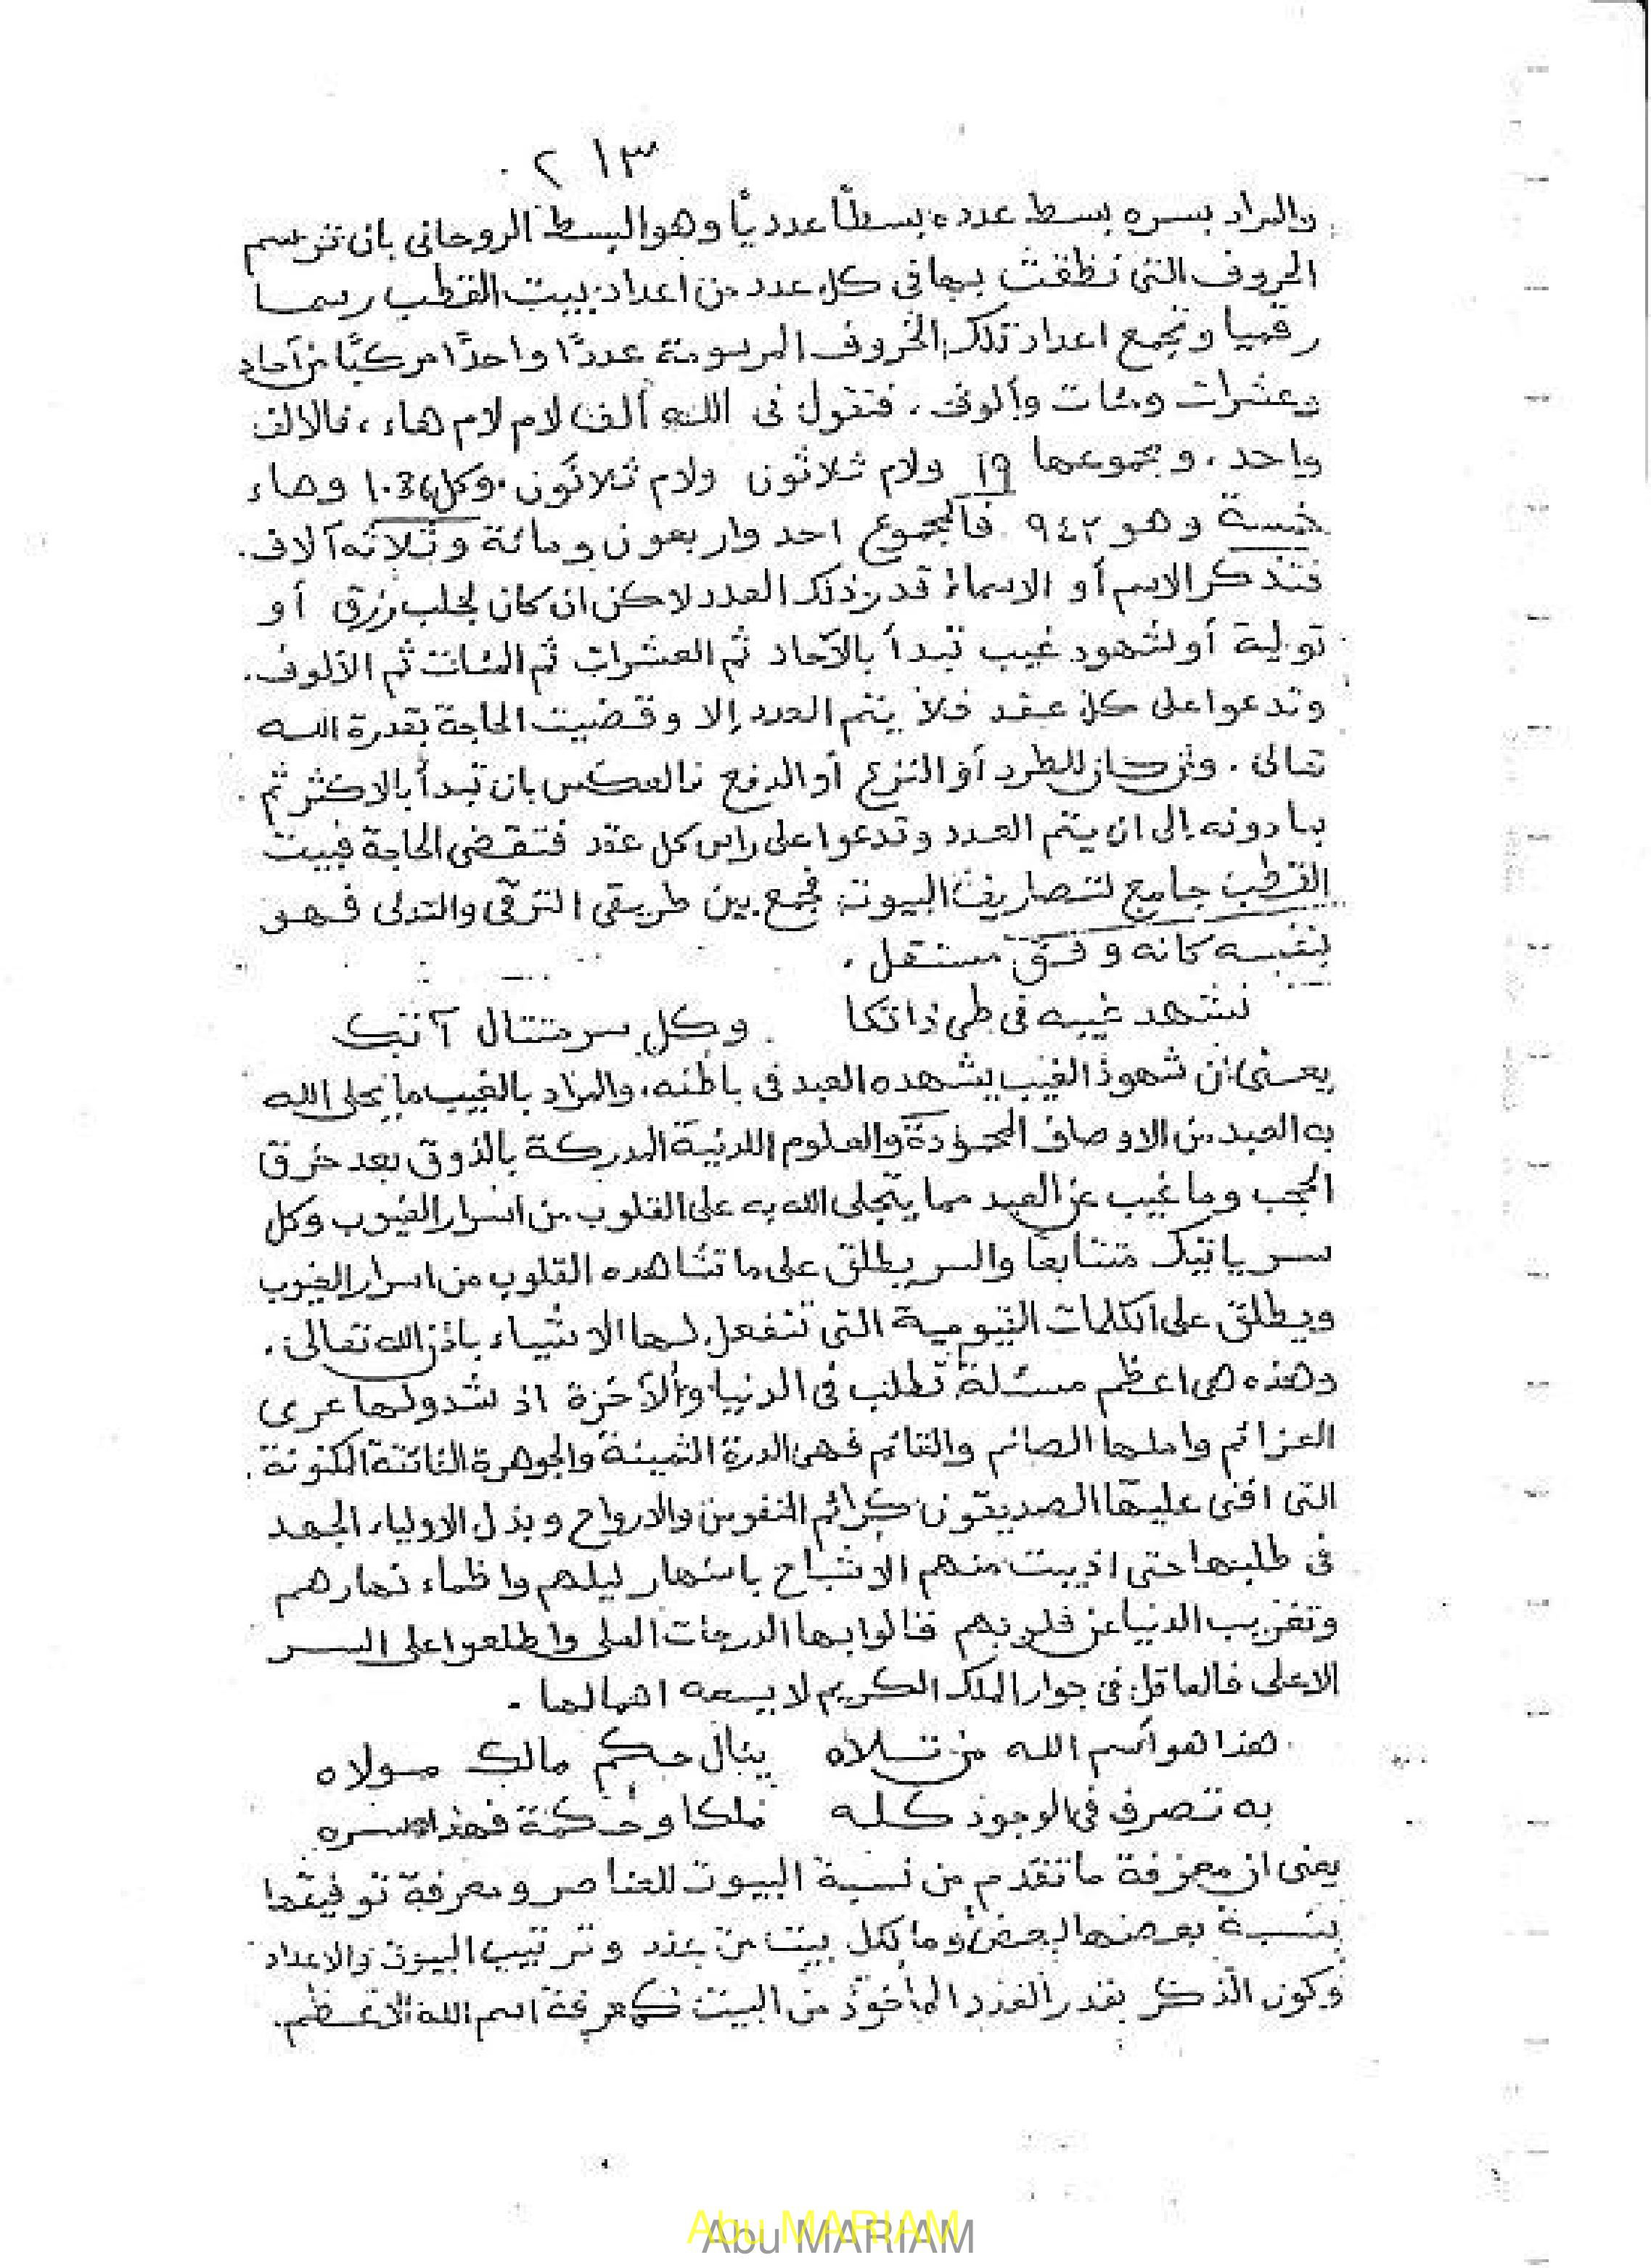 ٢١٣
والمراد بسره بسط عدده بسطًا عدديًا وهو البسط الروحانى بان ترسم
الحروف التى نطقت بها فى كل عدد من اعداد بيت القطب رسما
رقميا وتجمع اعداد تلك الحروف المرسومة عددًا واحدًا مركبًا من آحاد
وعشرات ومئات وألوف . فتقول فى الله ألف لام لام هاء ، فالالف
واحد . ومجموعها ١٩ ولام ثلاثون ولام ثلاثون . وكل وهاء
خمسة وهو ٩٤٢ فالمجموع احد واربعون ومائة وثلاثه آلاف .
فتذكر الاسم أو الاسماء قدر ذلك العدد لاكن ان كان لجلب رزق أو
تولية أو لشهود غيب تبدأ بالآحاد ثم العشرات ثم المئات ثم الألوف .
وتدعوا على كل عقد فلا يتم العدد إلا وقضيت الحاجة بقدرة الله
تعالى . وان كان للطرد أو النزع أو الدفع فالعكس بان تبدأ بالاكثر ثم
بما دونه الى ان يتم العدد وتدعوا على راس كل عقد فتقضى الحاجة فبيت
القطب جامع لتصاريف البيوت فجمع بين طريقى الترقى والتدلى فهو
بنفسه كانه وفق مستقل .
نشهد غيبه فى طى ذاتكا وكل سر متتال آتيك
يعنى ان شهود الغيب يشهده العبد فى باطنه ، والمراد بالغيب ما يحلى الله
به العبد من الاوصاف المحمودة والعلوم اللدنية المدركة بالذوق بعد خرق
الحجب وما غيب عن العبد مما يتجلى الله به على القلوب من اسرار الغيوب وكل
سر ياتيك متتابعا والسر يطلق على ما تشاهده القلوب من اسرار الغيوب
ويطلق على الكلمات القيومية التى تنفعل لها الاشياء باذن الله تعالى .
وهذه هى اعظم مسئلة تطلب فى الدنيا والأخرة اذ شدو لها عرى
العزائم واملها الصائم والقائم فهى الدرة الثمينة والجوهرة المكنونة .
التى افنى عليها الصديقون كرائم النفوس والارواح وبذل الاولياء الجهد
فى طلبها حتى اذيبت منهم الاشباح باسهار ليلهم واظماء نهارهم
وتغريب الدنيا عن قلوبهم فنالوا بها الدرجات العلى واطلعوا على السر
الاعلى فالعاقل فى جوار الملك الكريم لا يسعه اهمالها .
هذا هو اسم الله من تلاه ينال حكم مالك مولاه
به تصرف فى الوجود كله ملكا وحكمة فهذا سره
يعنى ان معرفة ما تقدم من نسبة البيوت للعناصر ومعرفة توفيقها
بنسبة بعضها لبعض وما لكل بيت من عدد وترتيب البيوت والاعداد
وكون الذكر بقدر العدد الماخوذ من البيت كمعرفة اسم الله الاعظم .
Abu MARIAM